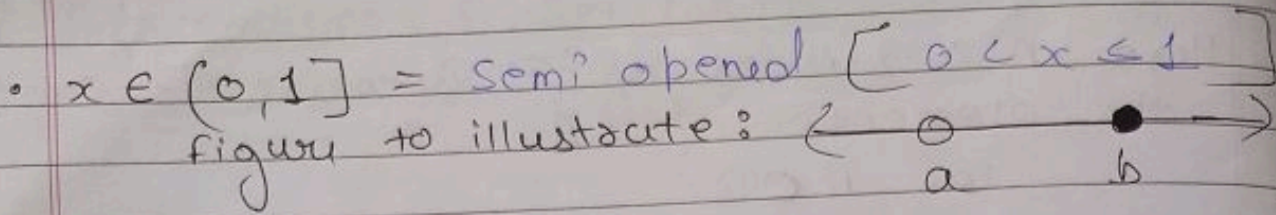 • x ∈ (0, 1] = Semi opened [ 0 < x ≤ 1 ]
figure to illustrate :
a b